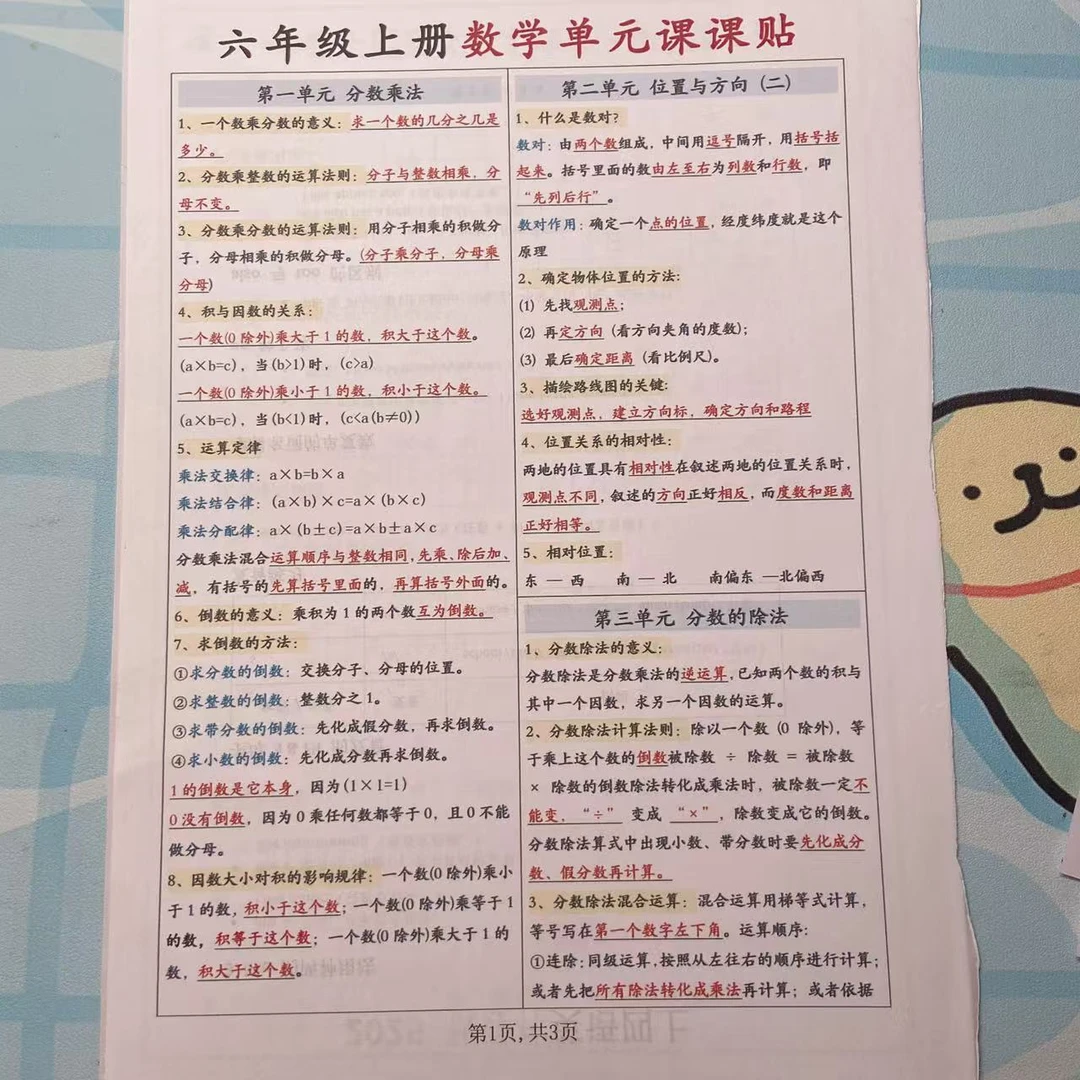 六年级上册数学单元课课贴
第一单元 分数乘法
1、一个数乘分数的意义：求一个数的几分之几是
多少。
2、分数乘整数的运算法则：分子与整数相乘，分
母不变。
3、分数乘分数的运算法则：用分子相乘的积做分
子，分母相乘的积做分母。(分子乘分子，分母乘
分母)
4、积与因数的关系：
一个数(0 除外)乘大于 1 的数，积大于这个数。
(a×b=c)，当(b>1)时，(c>a)
一个数(0 除外)乘小于 1 的数，积小于这个数。
(a×b=c)，当(b<1)时，(c<a(b≠0))
5、运算定律
乘法交换律：a×b=b×a
乘法结合律：(a×b)×c=a×(b×c)
乘法分配律：a×(b±c)=a×b±a×c
分数乘法混合运算顺序与整数相同，先乘、除后加、
减，有括号的先算括号里面的，再算括号外面的。
6、倒数的意义：乘积为 1 的两个数互为倒数。
7、求倒数的方法：
①求分数的倒数：交换分子、分母的位置。
②求整数的倒数：整数分之 1。
③求带分数的倒数：先化成假分数，再求倒数。
④求小数的倒数：先化成分数再求倒数。
1 的倒数是它本身，因为(1×1=1)
0 没有倒数，因为 0 乘任何数都等于 0，且 0 不能
做分母。
8、因数大小对积的影响规律：一个数(0 除外)乘小
于 1 的数，积小于这个数；一个数(0 除外)乘等于 1
的数，积等于这个数；一个数(0 除外)乘大于 1 的
数，积大于这个数。
第二单元 位置与方向（二）
1、什么是数对？
数对：由两个数组成，中间用逗号隔开，用括号括
起来。括号里面的数由左至右为列数和行数，即
“先列后行”。
数对作用：确定一个点的位置，经度纬度就是这个
原理
2、确定物体位置的方法：
(1) 先找观测点；
(2) 再定方向（看方向夹角的度数)；
(3) 最后确定距离（看比例尺)。
3、描绘路线图的关键：
选好观测点，建立方向标，确定方向和路程
4、位置关系的相对性：
两地的位置具有相对性在叙述两地的位置关系时，
观测点不同，叙述的方向正好相反，而度数和距离
正好相等。
5、相对位置：
东 — 西 南 — 北 南偏东 —北偏西
第三单元 分数的除法
1、分数除法的意义：
分数除法是分数乘法的逆运算，已知两个数的积与
其中一个因数，求另一个因数的运算。
2、分数除法计算法则：除以一个数（0 除外)，等
于乘上这个数的倒数被除数 ÷ 除数 = 被除数
× 除数的倒数除法转化成乘法时，被除数一定不
能变，“÷” 变成 “×”，除数变成它的倒数。
分数除法算式中出现小数、带分数时要先化成分
数、假分数再计算。
3、分数除法混合运算：混合运算用梯等式计算，
等号写在第一个数字左下角。运算顺序：
①连除：同级运算，按照从左往右的顺序进行计算；
或者先把所有除法转化成乘法再计算；或者依据
第1页，共3页